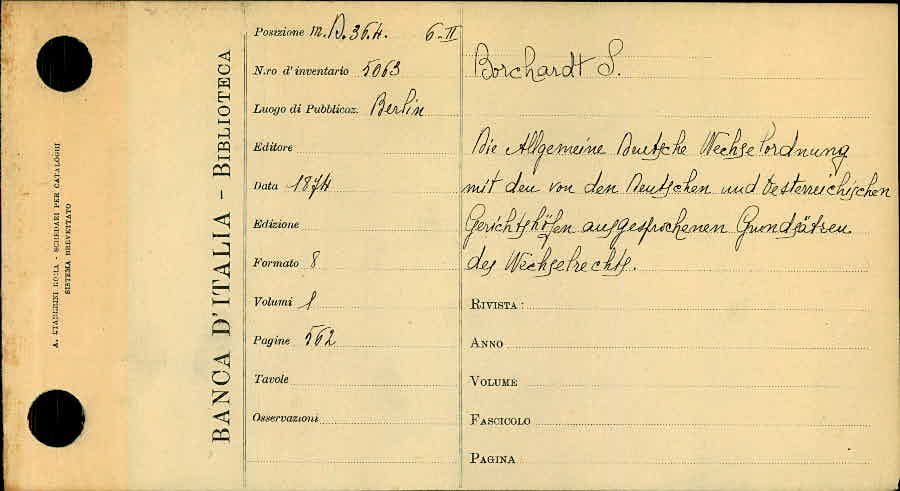 A. STADERINI ROMA - SCHEDARI PER CATALOGHI
SISTEMA BREVETTATO
BANCA D'ITALIA - BIBLIOTECA
Posizione 6-II
N.ro d'inventario 5063
Luogo di Pubblicaz. Berlin
Editore
Data 1874
Edizione
Formato 8
Volumi 1
Pagine 562
Tavole
Osservazioni
Borchardt S.
Die Allgemeine Deutsche Wechselordnung
mit den von den Deutschen und Oesterreichischen
Gerichtshöfen ausgesprochenen Grundsätzen
des Wechselrechts.
RIVISTA :
ANNO
VOLUME
FASCICOLO
PAGINA